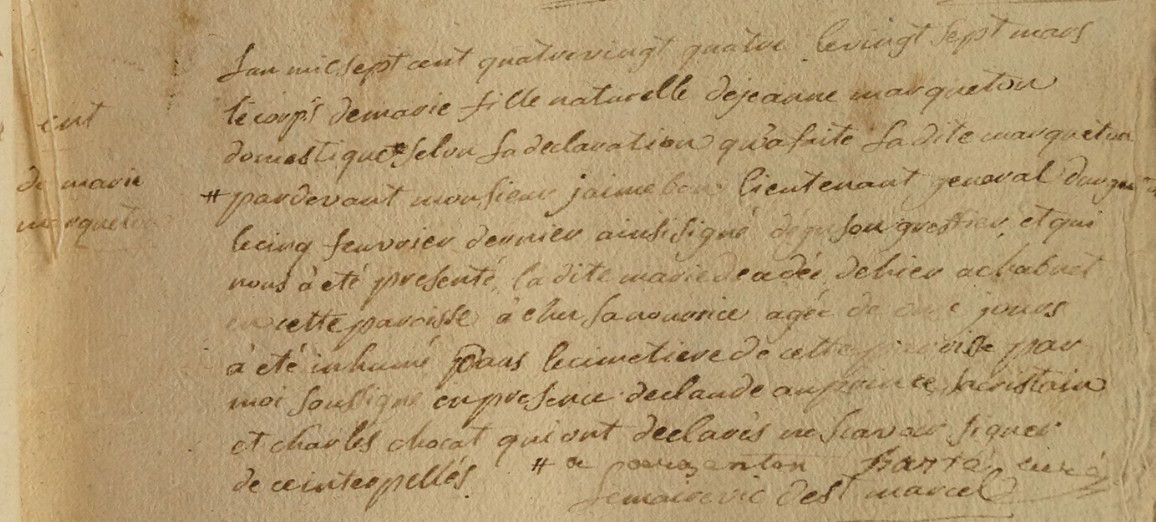 ent
de marie
marqueton
Lan mil sept cent quatrevingt quatre le vingt sept mars
le corps de marie fille naturelle de jeanne marqueton
domestique # selon la declaration qu'a faite la dite marqueton
# pardevant monsieur lieutenant general
le cinq fevrier dernier ainsi signé greffier, et qui
nous à été presenté, la dite marie decedée dehier a chabenet
en cette paroisse à cher sa nourice agée de jours
à été inhumé dans le cimetiere de cette paroisse par
moi soussigné en presence de claude sacristain
et charles chocat qui ont declarés ne scavoir signer
de ce interpellés # a dargenton curé
de st marcel